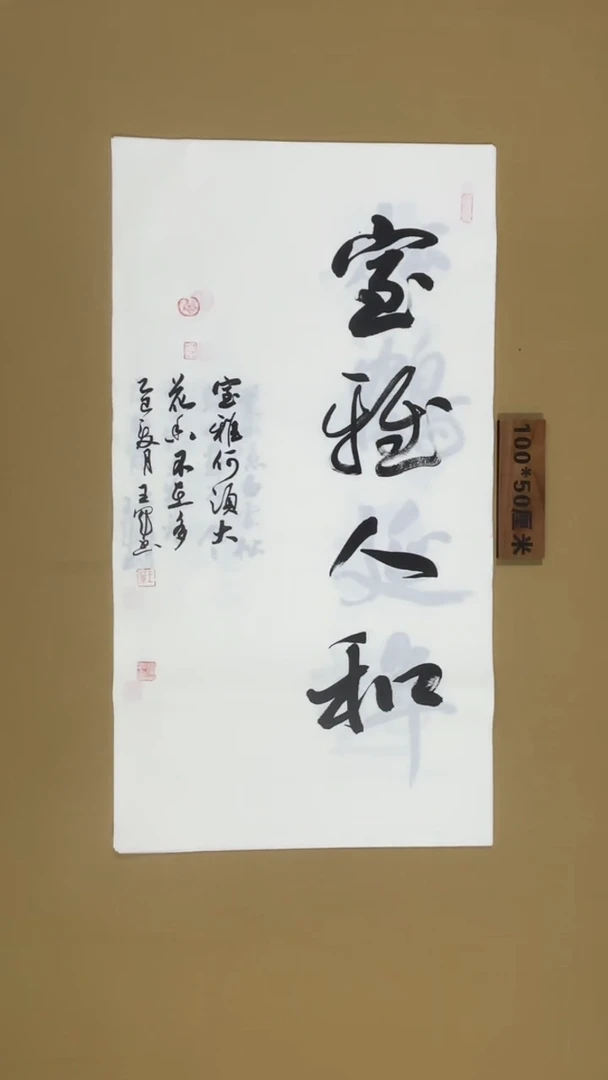 室雅人和
室雅何須大
花香不在多
乙巳夏月王
100*50厘米